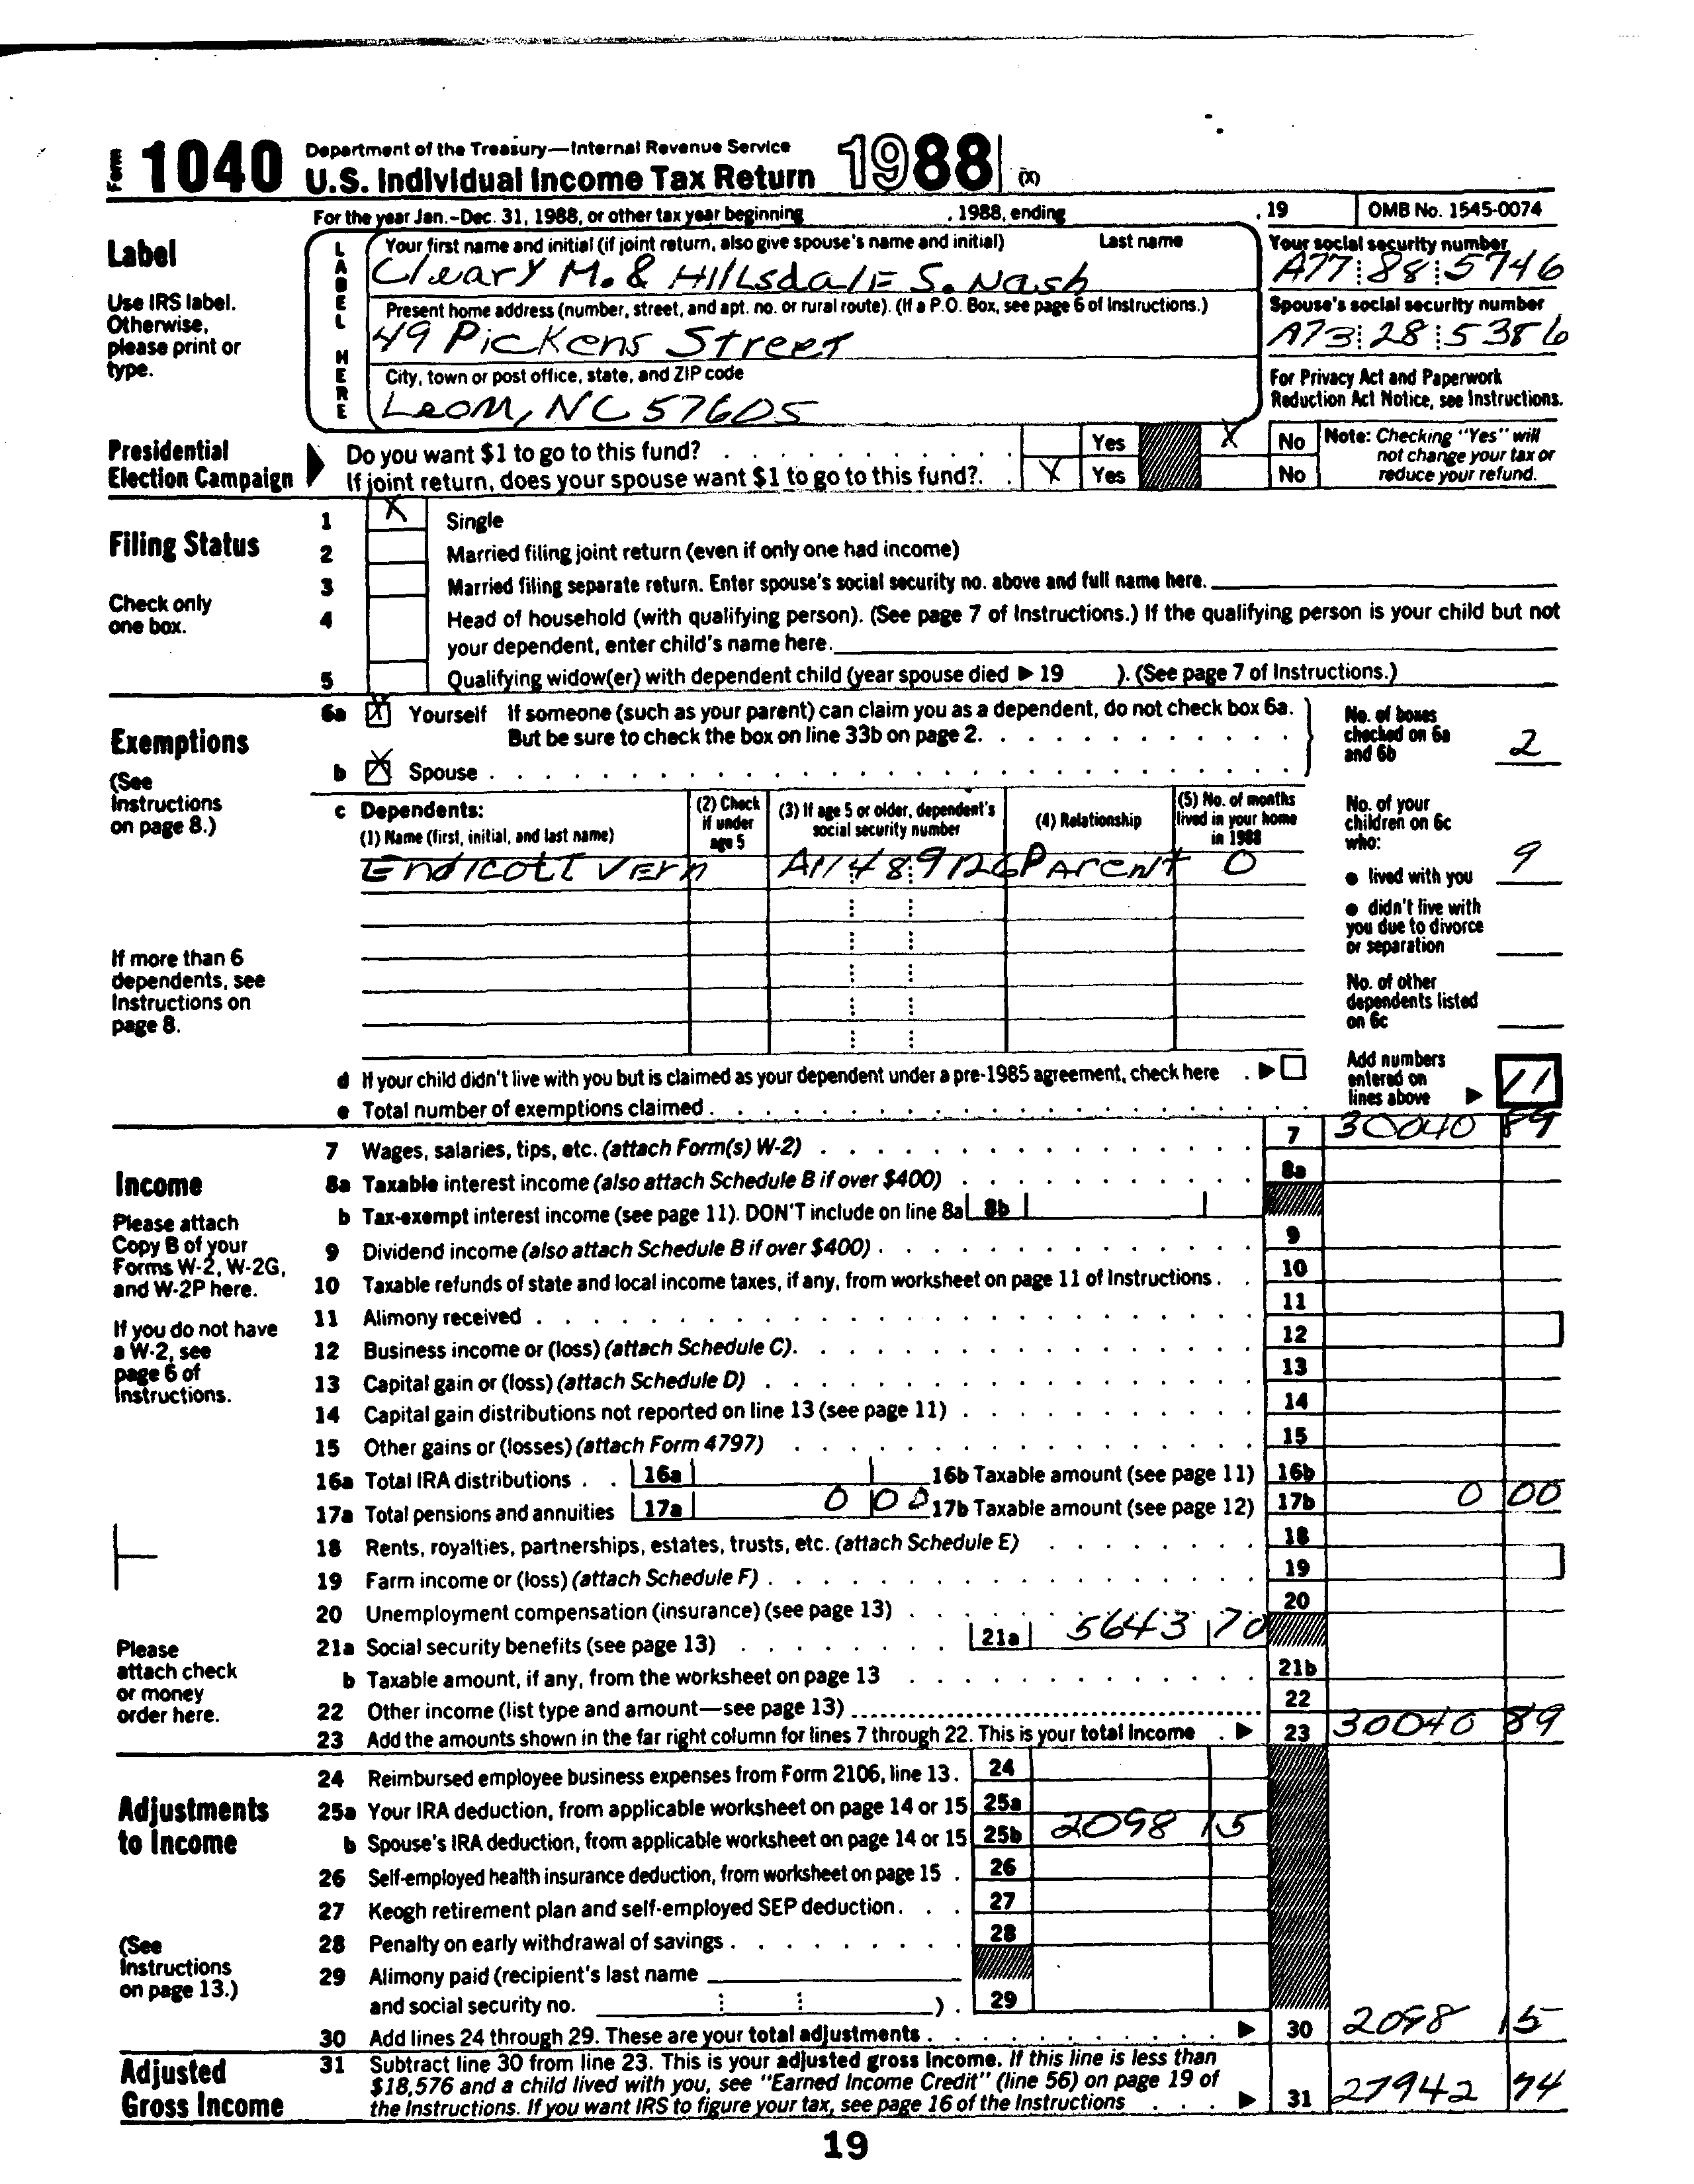 Form 1040 Department of the Treasury—Internal Revenue Service
U.S. Individual Income Tax Return 1988 (X)
For the year Jan.-Dec. 31, 1988, or other tax year beginning , 1988, ending , 19 OMB No. 1545-0074
Label
Use IRS label. Otherwise, please print or type.
LABEL HERE
Your first name and initial (if joint return, also give spouse's name and initial) Last name
Cleary M. & Hillsdale S. Nash
Your social security number
A77 88 5746
Present home address (number, street, and apt. no. or rural route). (If a P.O. Box, see page 6 of Instructions.)
49 Pickens Street
Spouse's social security number
A73 28 5386
City, town or post office, state, and ZIP code
Leom, NC 57605
For Privacy Act and Paperwork Reduction Act Notice, see Instructions.
Presidential Election Campaign
Do you want $1 to go to this fund? Yes X No
If joint return, does your spouse want $1 to go to this fund?. X Yes No
Note: Checking "Yes" will not change your tax or reduce your refund.
Filing Status
Check only one box.
1 X Single
2 Married filing joint return (even if only one had income)
3 Married filing separate return. Enter spouse's social security no. above and full name here.
4 Head of household (with qualifying person). (See page 7 of Instructions.) If the qualifying person is your child but not
your dependent, enter child's name here.
5 Qualifying widow(er) with dependent child (year spouse died ▶ 19 ). (See page 7 of Instructions.)
Exemptions
(See Instructions on page 8.)
6a X Yourself If someone (such as your parent) can claim you as a dependent, do not check box 6a.
But be sure to check the box on line 33b on page 2.
b X Spouse
No. of boxes checked on 6a and 6b 2
c Dependents:
(1) Name (first, initial, and last name)
(2) Check if under age 5
(3) If age 5 or older, dependent's social security number
(4) Relationship
(5) No. of months lived in your home in 1988
Endicott Vern A11 48 9126 Parent 0
If more than 6 dependents, see Instructions on page 8.
No. of your children on 6c who:
• lived with you 9
• didn't live with you due to divorce or separation
No. of other dependents listed on 6c
d If your child didn't live with you but is claimed as your dependent under a pre-1985 agreement, check here . ▶
e Total number of exemptions claimed
Add numbers entered on lines above ▶ 11
Income
Please attach Copy B of your Forms W-2, W-2G, and W-2P here.
If you do not have a W-2, see page 6 of Instructions.
7 Wages, salaries, tips, etc. (attach Form(s) W-2) 7 30040 89
8a Taxable interest income (also attach Schedule B if over $400) 8a
b Tax-exempt interest income (see page 11). DON'T include on line 8a 8b
9 Dividend income (also attach Schedule B if over $400) 9
10 Taxable refunds of state and local income taxes, if any, from worksheet on page 11 of Instructions 10
11 Alimony received 11
12 Business income or (loss) (attach Schedule C) 12
13 Capital gain or (loss) (attach Schedule D) 13
14 Capital gain distributions not reported on line 13 (see page 11) 14
15 Other gains or (losses) (attach Form 4797) 15
16a Total IRA distributions 16a 16b Taxable amount (see page 11) 16b
17a Total pensions and annuities 17a 0 00 17b Taxable amount (see page 12) 17b 0 00
18 Rents, royalties, partnerships, estates, trusts, etc. (attach Schedule E) 18
19 Farm income or (loss) (attach Schedule F) 19
20 Unemployment compensation (insurance) (see page 13) 20
21a Social security benefits (see page 13) 21a 5643 70
b Taxable amount, if any, from the worksheet on page 13 21b
22 Other income (list type and amount—see page 13) 22
23 Add the amounts shown in the far right column for lines 7 through 22. This is your total income ▶ 23 30040 89
Please attach check or money order here.
Adjustments to Income
(See Instructions on page 13.)
24 Reimbursed employee business expenses from Form 2106, line 13 24
25a Your IRA deduction, from applicable worksheet on page 14 or 15 25a
b Spouse's IRA deduction, from applicable worksheet on page 14 or 15 25b 2098 15
26 Self-employed health insurance deduction, from worksheet on page 15 26
27 Keogh retirement plan and self-employed SEP deduction 27
28 Penalty on early withdrawal of savings 28
29 Alimony paid (recipient's last name
and social security no. ) 29
30 Add lines 24 through 29. These are your total adjustments ▶ 30 2098 15
Adjusted Gross Income
31 Subtract line 30 from line 23. This is your adjusted gross income. If this line is less than
$18,576 and a child lived with you, see "Earned Income Credit" (line 56) on page 19 of
the Instructions. If you want IRS to figure your tax, see page 16 of the Instructions ▶ 31 27942 74
19